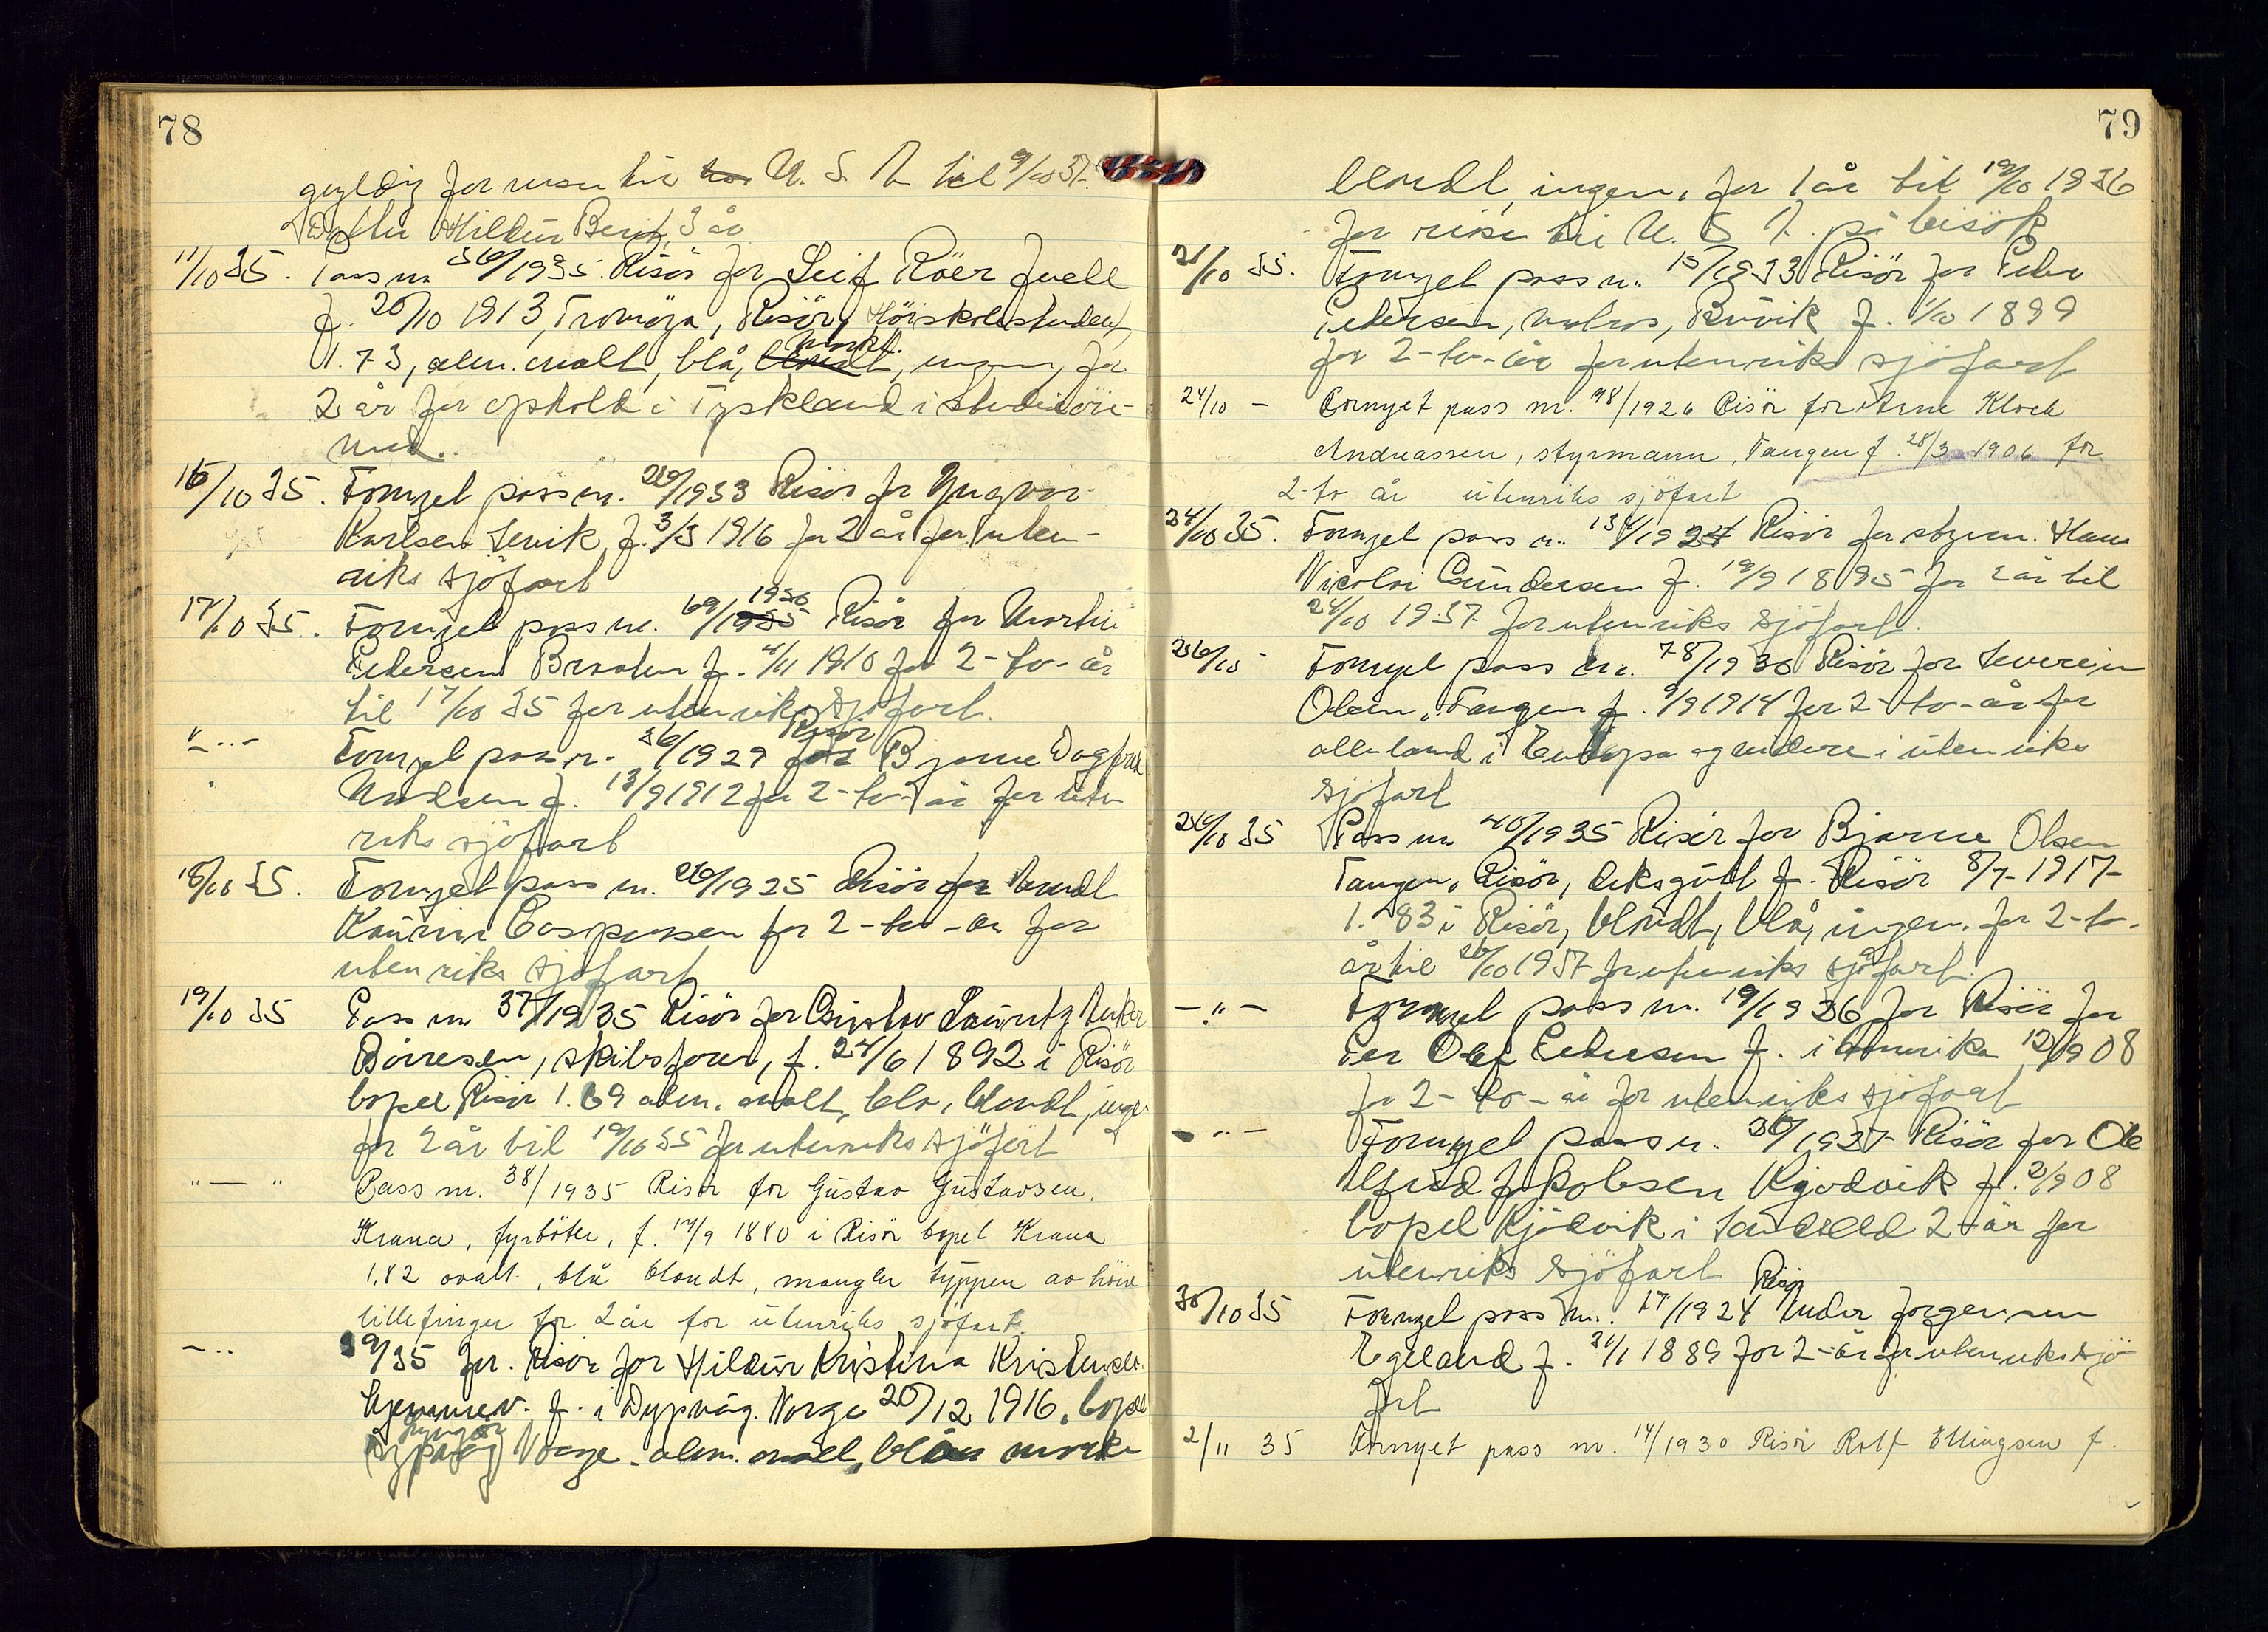 78
gyldig for reise til U. S. A. til 9/10 37.
Datter Hildur Berit, 3 år
11/10 35. Pass nr. 36/1935 Risör for Leif Röer Juell
f. 20/10 1913, Tromöya, Risör, Höiskolestudent,
1.73, alm. ovalt, blå, mørkt. ingen, for
2 år for ophold i Tyskland i studieöie-
med.
16/10 35. Fornyet pass nr. 26/1933 Risör for Yngvar
Karlsen Levik, f. 3/3 1916 for 2 år for uten-
riks sjöfart
17/10 35. Fornyet pass nr. 69/1930 Risör for Martin
Pedersen Braaten f. 4/11 1910 for 2-to-år
til 17/10 35 for utenriks sjöfart.
"-..- Fornyet pass nr. 36/1929 Risör Bjarne Dagfred
Madsen f. 13/9 1912 for 2-to-år for uten-
riks sjöfart
18/10 35. Fornyet pass nr. 26/1925 Risör for
Kaurin Caspersen for 2-to-år for
utenriks sjöfart
19/10 35 Pass nr 37/1935 Risör for Gustav Lauritz
Börresen, skibsförer, f. 24/6 1892 i Risör
bopel Risör 1.69 alm. ovalt, blå, blondt, ingen
for 2 år til 19/10 35 for utenriks sjöfart
"—" Pass nr. 38/1935 Risör for Gustav Gustavsen,
Krana, fyrböter, f. 17/9 1880 i Risör bopel Krana
1,82 ovalt, blå blondt, mangler typpen av höire
lillefinger for 2 år for utenriks sjöfart.
-.. 39/35 for. Risör for Hildur Kristina Kristensen
f. i Dypvåg. Norge 20/12 1916, bopel
Norge - alm. ovalt, blå mörke
79
blondt, ingen, for 1 år til 19/10 1936
for reise til U. S. A. på besök
21/10 35. Fornyet pass nr. 15/1933 Risör for Peder
Pedersen, matros, f. 1/10 1899
for 2-to-år for utenriks sjöfart
24/10 - Fornyet pass nr. 98/1926 Risör for Arne Klock
Andreassen, styrmann, Tangen f. 28/3 1906 for
2-to år utenriks sjöfart
24/10 35. Fornyet pass nr. 134/1924 Risör for styrm. Hans
Nicolai Gundersen f. 19/9 1895 for 2 år til
24/10 1937 for utenriks sjöfart.
26/10 Fornyet pass nr. 78/1930 Risör for Severein
Olsen, Tangen f. 9/9 1914 for 2-to-år for
alle land i Europa og videre i utenriks
sjöfart
26/10 35 Pass nr 40/1935 Risör for Bjarne Olsen
Tangen, Risör, deksgutt f. Risör 8/7-1917-
1.83 i Risör, blondt, blå, ingen. for 2-to-
år til 26/10 1937 for utenriks sjöfart.
-"- Fornyet pass nr. 19/1936 for Risör for
Per Olaf Pedersen f. i Amerika 12/9 08
for 2-to-år for utenriks sjöfart
-"- Fornyet pass nr. 30/1927 Risör for Ole
Alfred Jakobsen Kjödvik f. 2/9 08
bopel Kjödvik i Söndeled 2-år for
utenriks sjöfart
30/10 35 Fornyet pass nr. 17/1924 Risör Peder Jörgensen
Egeland f. 31/1 1889 for 2-år for utenriks sjö-
fart
2/11 35 Fornyet pass nr. 14/1930 Risör Rolf Ellingsen f.